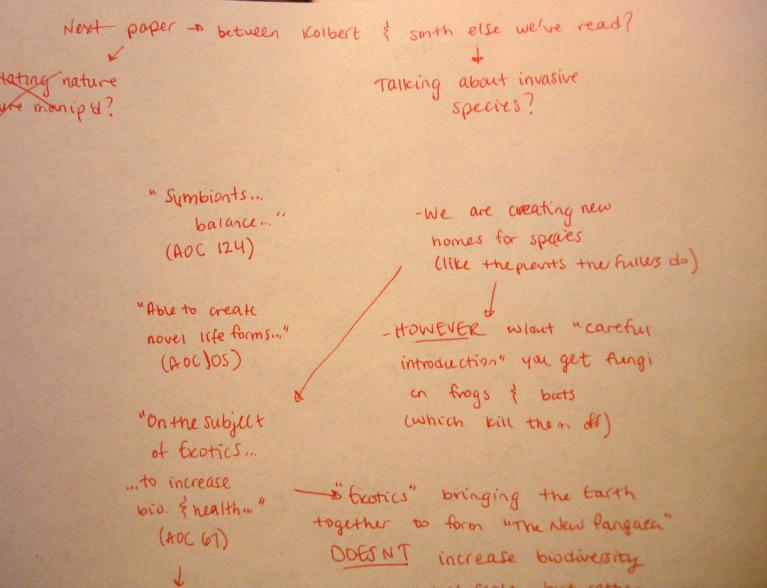 Next paper → between Kolbert & smth else we've read?
tating nature
ure manip'd?
Talking about invasive
species?
"Symbionts...
balance..."
(AOC 124)
"Able to create
novel life forms..."
(AOC 105)
"On the subject
of Exotics...
...to increase
bio. & health..."
(AOC 67)
-We are creating new
homes for species
(like the plants the fullers do)
-HOWEVER w/out "careful
introduction" you get fungi
on frogs & bats
(which kill them off)
"Exotics" bringing the Earth
together to form "The New Pangaea"
DOESNT increase biodiversity